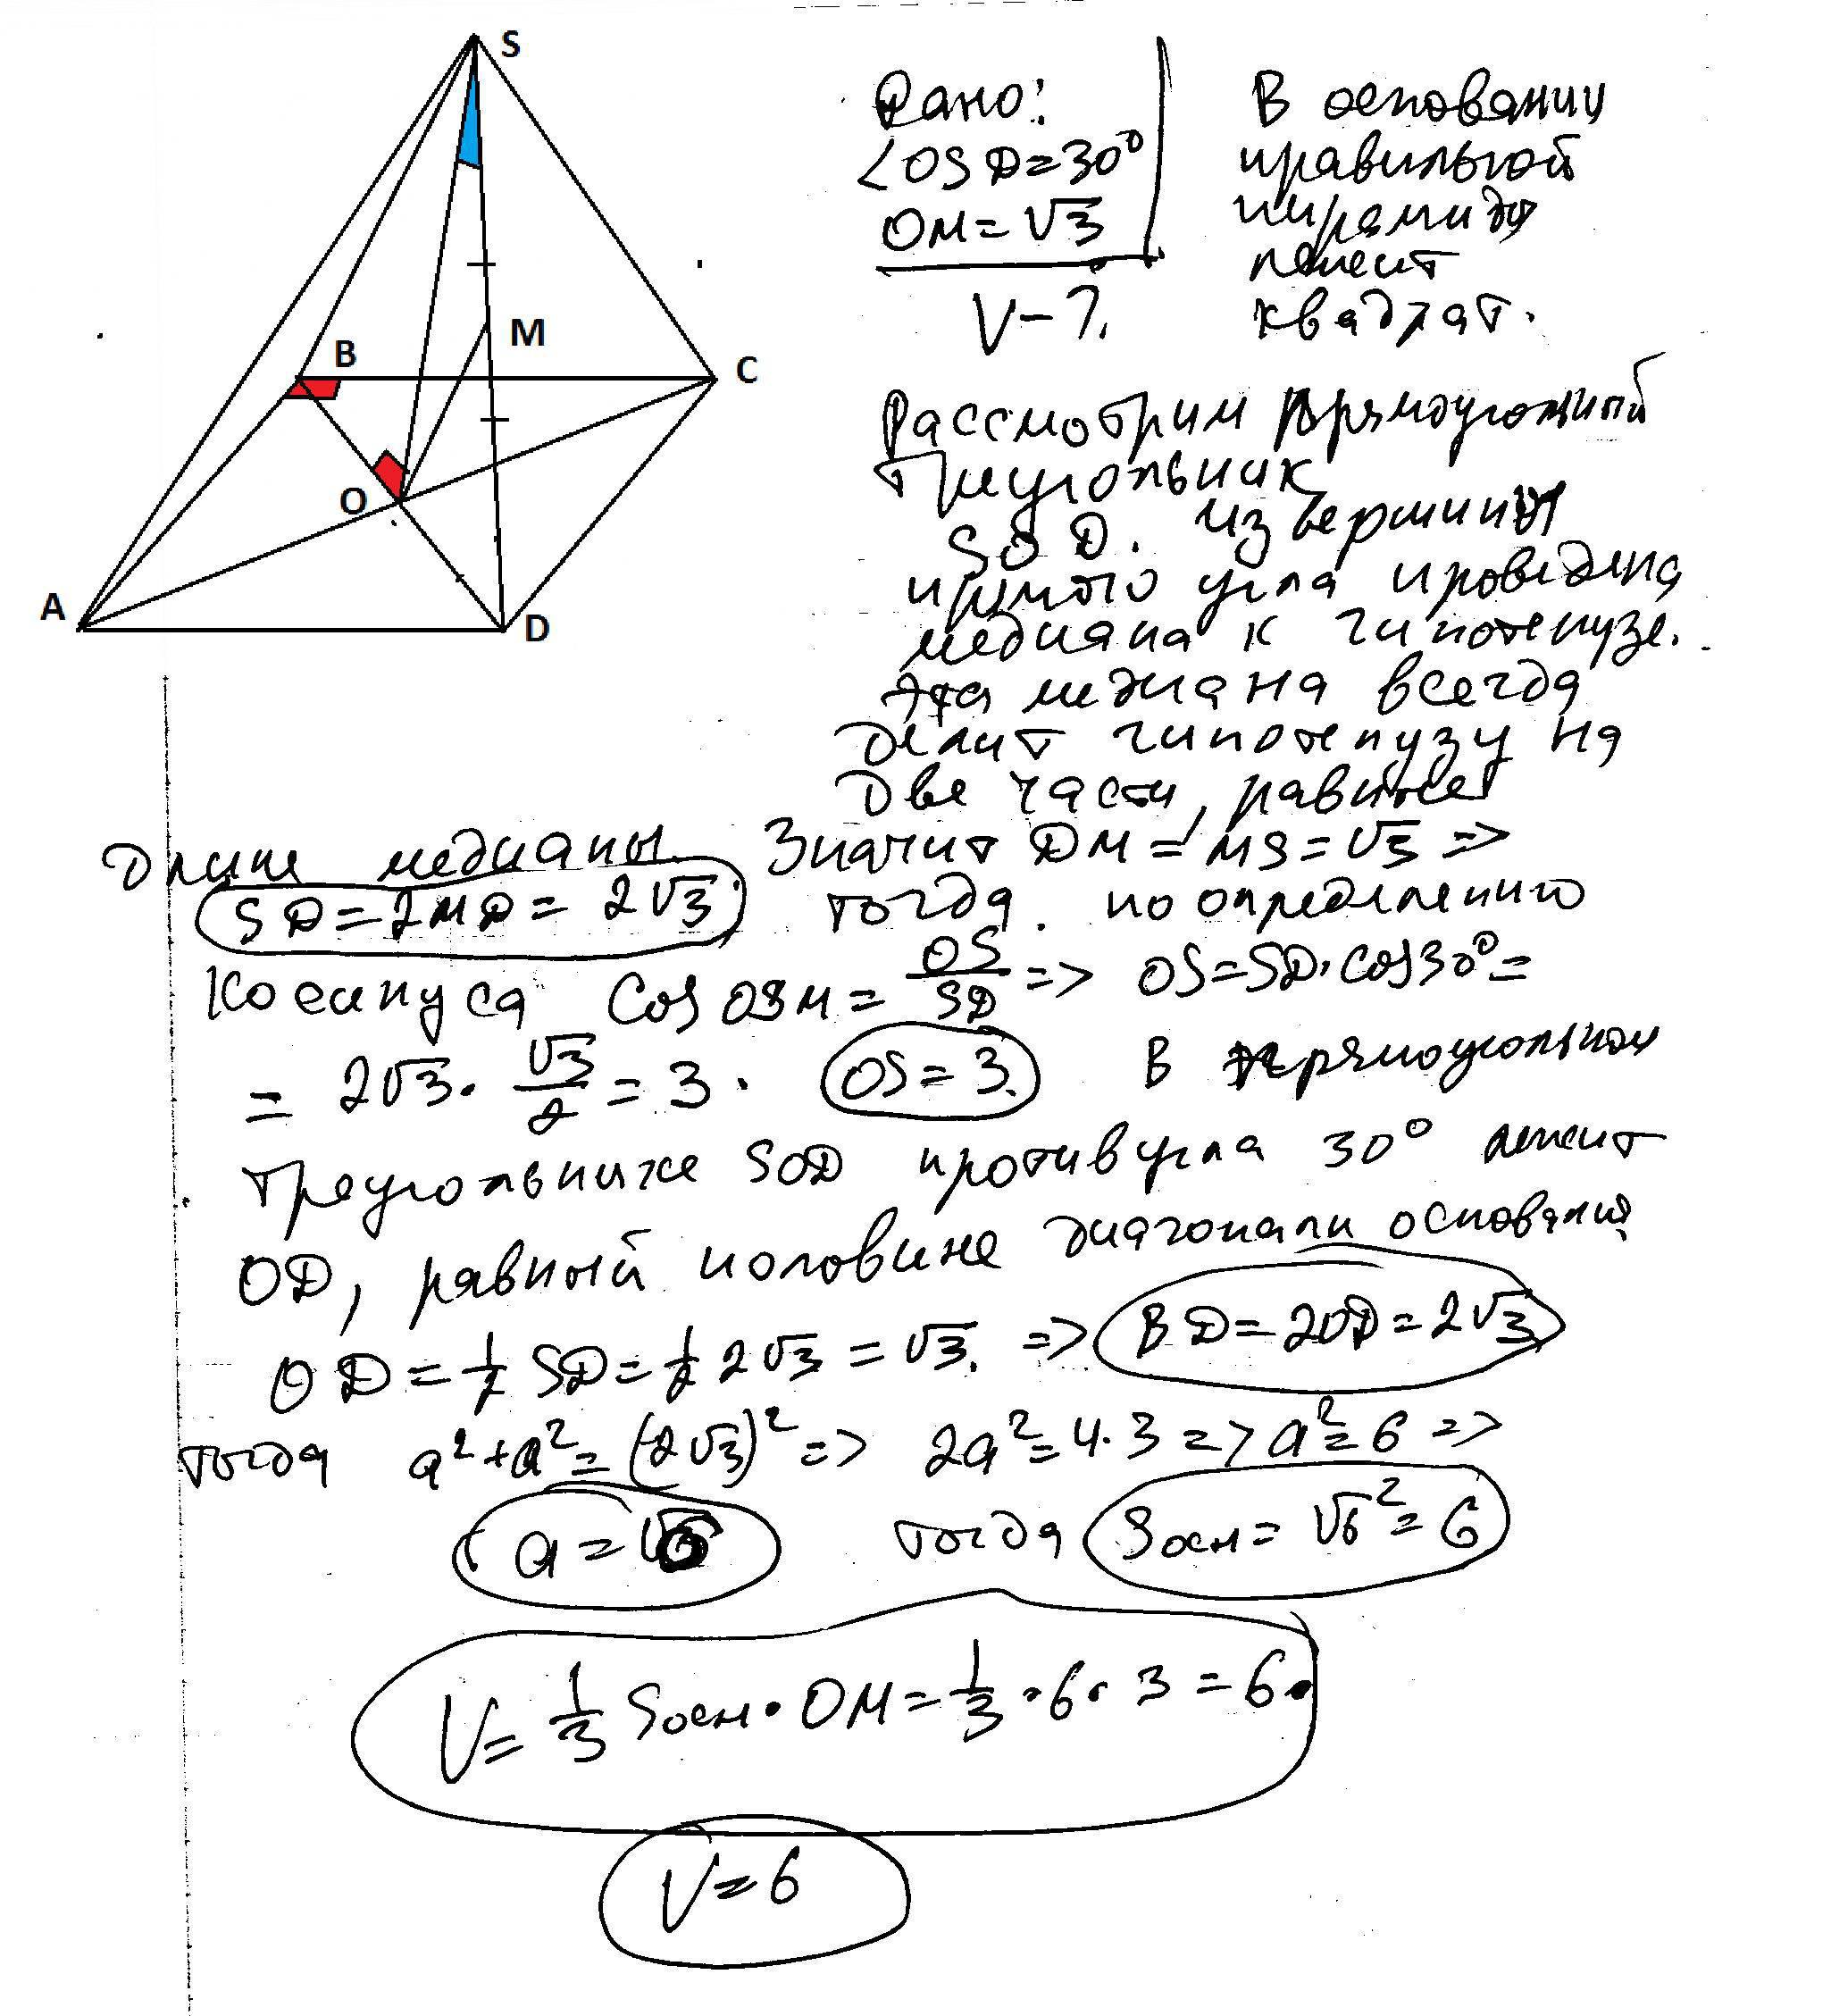 S
M
B
C
O
A
D
Дано:
∠OSD=30°
OM=√3
V-?
В основании
правильной
пирамиды
лежит
квадрат.
Рассмотрим прямоугольный
треугольник
SOD. Из вершины
прямого угла проведена
медиана к гипотенузе.
Эта медиана всегда
делит гипотенузу на
две части, равные
длине медианы. Значит DM=MS=√3 =>
SD=2MD=2√3. тогда по определению
косинуса cos OSM = OS/SD => OS=SD·cos30°=
= 2√3 · √3/2 = 3. OS=3. В прямоугольном
треугольнике SOD против угла 30° лежит
OD, равный половине диагонали основания
OD=1/2 SD=1/2 2√3=√3. => BD=2OD=2√3
тогда a²+a²=(2√3)² => 2a²=4·3 => a²=6 =>
a=√6 тогда Sосн=√6²=6
V=1/3 Sосн·OM=1/3·6·3=6.
V=6